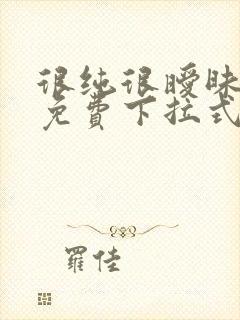 很纯很暧昧
免费下拉式
羅佳